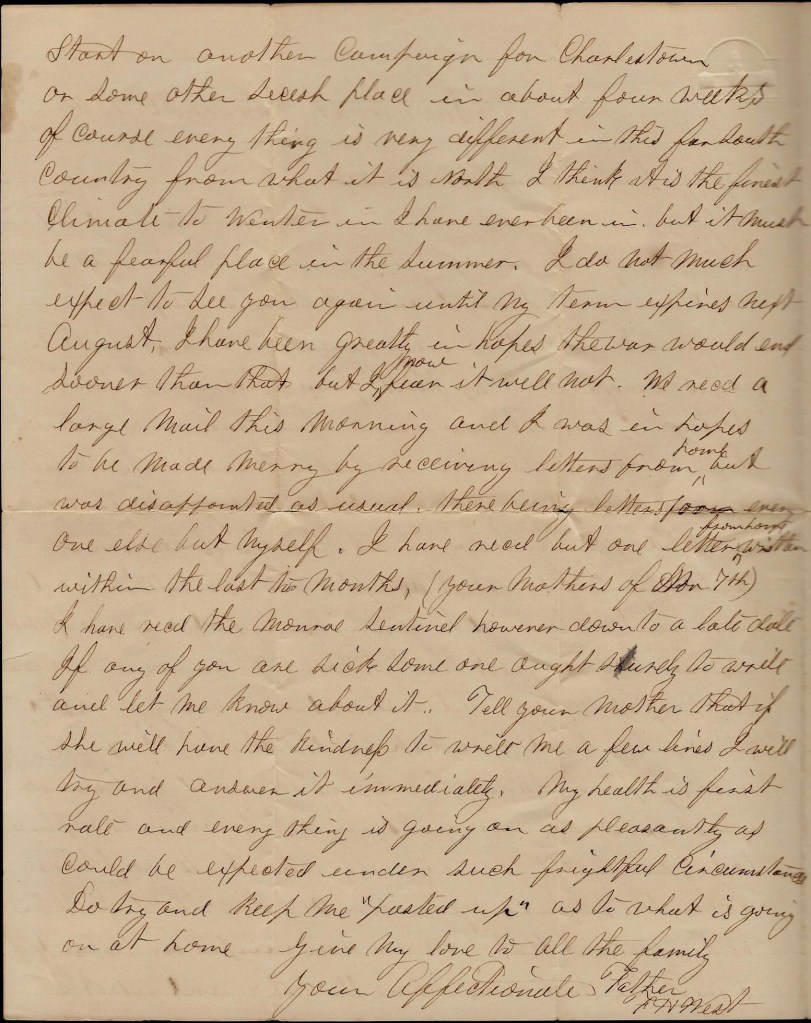 Start on another Campaign for Charlestown
or some other secesh place in about four weeks
of course every thing is very different in this far South
Country from what it is North I think it is the finest
Climate to Winter in I have ever been in. but it must
be a fearful place in the summer. I do not much
expect to see you again until my term expires next
August, I have been greatly in hopes the war would end
sooner than that but I now fear it will not. We recd a
large Mail this Morning and I was in hopes
to be Made Merry by receiving letters from home but
was disappointed as usual. there being letters for every
one else but Myself. I have recd but one letter from home written
within the last two Months, (your Mothers of Nov 7th)
I have recd the Monroe Sentinel however down to a late date
If any of you are sick some one ought surely to write
and let me know about it.. Tell your Mother that if
she will have the kindness to write Me a few lines I will
try and answer it immediately. My health is first
rate and every thing is going on as pleasantly as
could be expected under such frightful Circumstances
Do try and keep Me "posted up" as to what is going
on at home Give My love to all the family
Your Affectionate Father
F H West